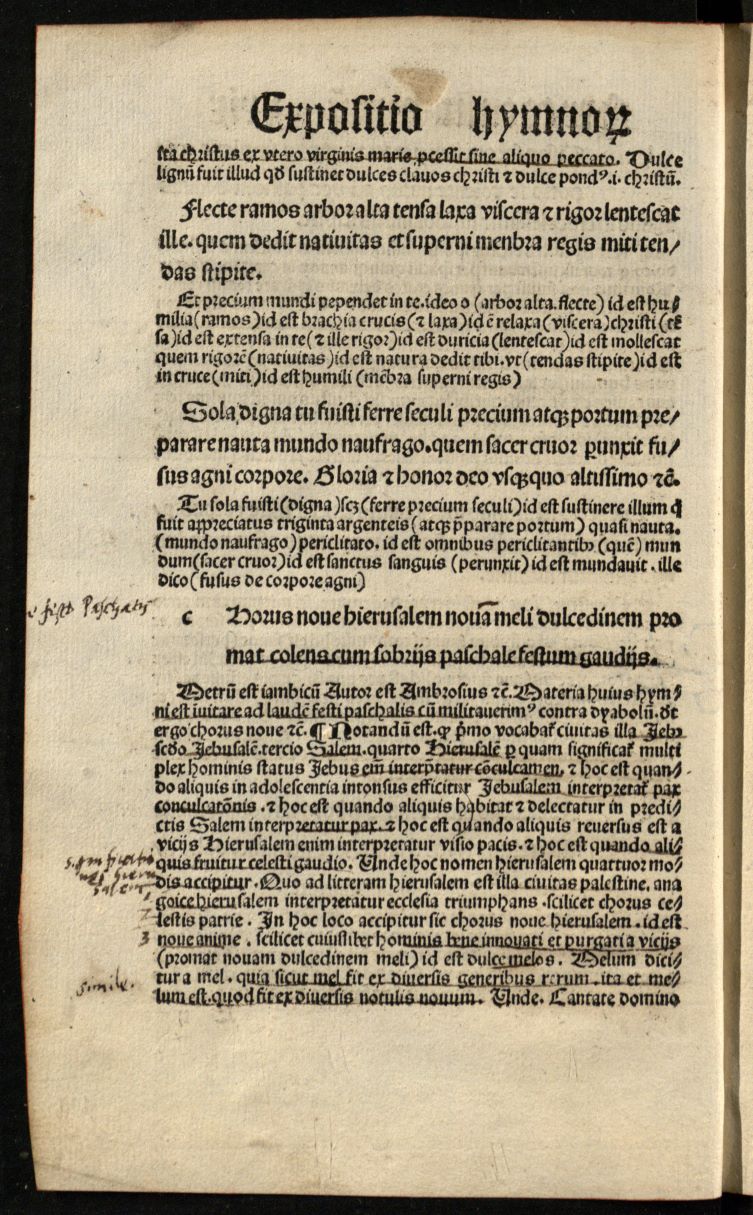 Expositio hymnoꝝ
sta christus ex vtero virginis marie ꝓcessit sine aliquo peccato. Dulce
lignũ fuit illud qđ sustinet dulces clauos christi ⁊ dulce pondꝰ.i. christũ.
Flecte ramos arbor alta tensa laxa viscera ⁊ rigor lentescat
ille. quem dedit natiuitas et superni menbra regis miti ten/
das stipite.
Et precium mundi pependet in te. ideo o (arbor alta. flecte) id est hu/
milia (ramos) id est brachia crucis (⁊ laxa) id ē relaxa (viscera) christi (tē
sa) id est extensa in te (⁊ ille rigor) id est duricia (lentescat) id est mollescat
quem rigorē (natiuitas) id est natura dedit tibi. vt (tendas stipite) id est
in cruce (miti) id est humili (mēbra superni regis)
Sola digna tu fuisti ferre seculi precium atqꝫ portum pre/
parare nauta mundo naufrago. quem sacer cruor ꝑunxit fu/
sus agni corpore. Gloria ⁊ honor deo vsqꝫquo altissimo ⁊c̄.
Tu sola fuisti (digna) scꝫ (ferre precium seculi) id est sustinere illum ꝗ
fuit appreciatus triginta argenteis (atqꝫ p̄parare portum) quasi nauta.
(mundo naufrago) periclitato. id est omnibus periclitantibꝰ (quē) mun
dum (sacer cruor) id est sanctus sanguis (perunxit) id est mundauit. ille
dico (fusus de corpore agni)
e fest Paschatis
c Horus noue hierusalem nouā meli dulcedinem pro
mat colens cum sobrijs paschale festum gaudijs.
Metrũ est iambicũ Autor est Ambrosius ⁊c̄. Materia huius hym/
ni est īuitare ad laudē festi paschalis cũ militauerimꝰ contra dyabolũ. dt
ergo chorus noue ⁊c̄. ¶ Notandũ est. ꝙ p̄mo vocabaf ciuitas illa Jebꝰ
scđo Jebusalē. tercio Salem. quarto Hierusalē ꝑ quam significaf multi
plex hominis status Jebus em̄ interp̄tatur cōculcamen. ⁊ hoc est quan/
do aliquis in adolescentia intonsus efficitur Jebusalem interpretaf pax
conculcatōnis. ⁊ hoc est quando aliquis habitat ⁊ delectatur in predi/
ctis Salem interpretatur pax. ⁊ hoc est quando aliquis reuersus est a
vicijs Hierusalem enim interpretatur visio pacis. ⁊ hoc est quando ali/
quis fruitur celesti gaudio. Unde hoc nomen hierusalem quattuor mo/
dis accipitur. Quo ad litteram hierusalem est illa ciuitas palestine. ana
goice hierusalem interpretatur ecclesia triumphans. scilicet chorus ce/
lestis patrie. In hoc loco accipitur sic chorus noue hierusalem. id est
3 noue anime. scilicet cuiuslibet hominis bene innouati et purgati a vicijs
(promat nouam dulcedinem meli) id est dulce melos. Melum dici/
tur a mel. quia sicut mel fit ex diuersis generibus rerum. ita et me/
simile.
lum est. quod fit ex diuersis notulis nouum. Unde. Cantate domino